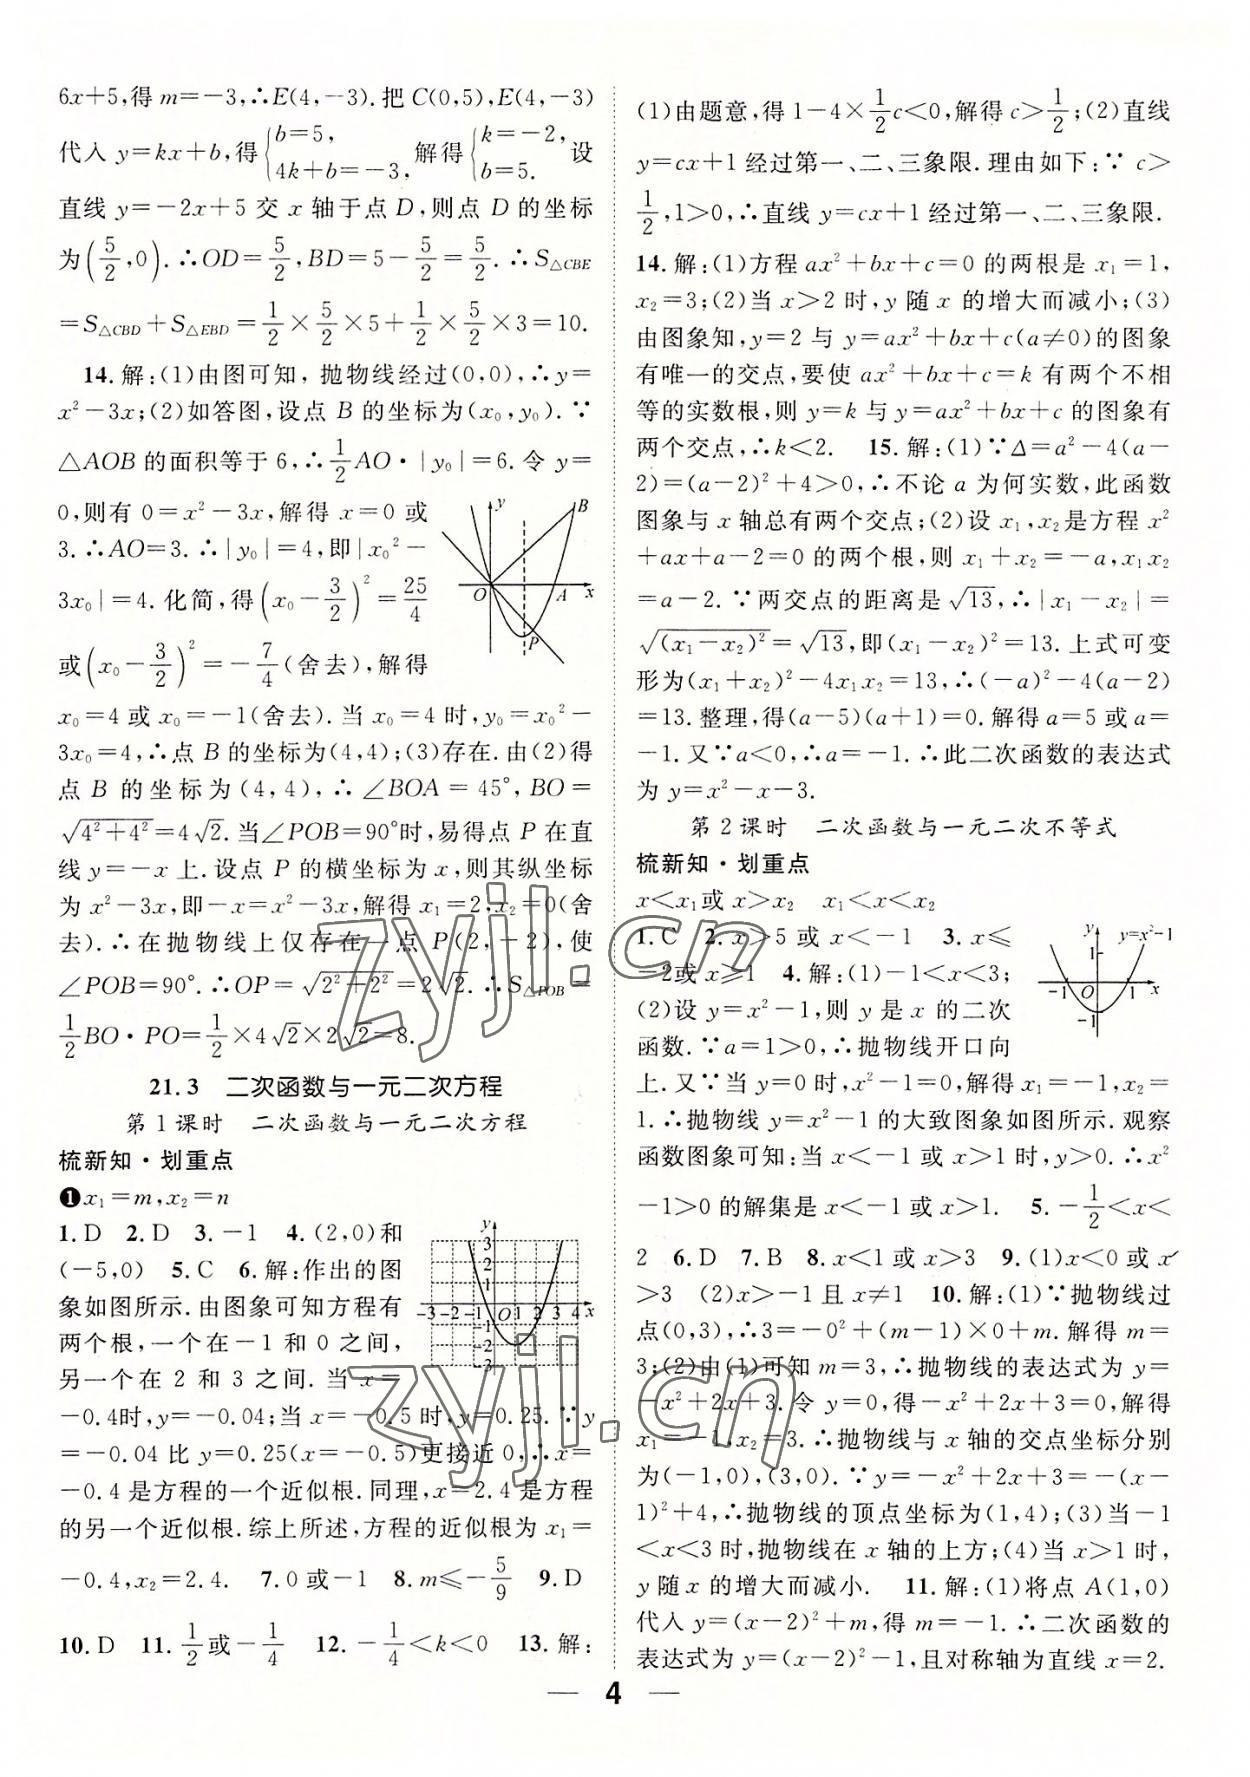 6x+5,得 m=-3,∴E(4,-3).把 C(0,5),E(4,-3)
代入 y=kx+b,得{b=5, 4k+b=-3, 解得{k=-2, b=5. 设
直线 y=-2x+5 交 x 轴于点 D,则点 D 的坐标
为(5/2,0).∴OD=5/2,BD=5-5/2=5/2.∴S△CBE
=S△CBD+S△EBD=1/2×5/2×5+1/2×5/2×3=10.
14.解:(1)由图可知,抛物线经过(0,0),∴y=
x²-3x;(2)如答图,设点 B 的坐标为(x₀,y₀).∵
△AOB 的面积等于 6,∴1/2AO·|y₀|=6.令 y=
0,则有 0=x²-3x,解得 x=0 或
3.∴AO=3.∴|y₀|=4,即|x₀²-
3x₀|=4.化简,得(x₀-3/2)²=25/4
或(x₀-3/2)²=-7/4(舍去),解得
y B O A x P
x₀=4 或 x₀=-1(舍去).当 x₀=4 时,y₀=x₀²-
3x₀=4,∴点 B 的坐标为(4,4);(3)存在.由(2)得
点 B 的坐标为(4,4),∴∠BOA=45°,BO=
√(4²+4²)=4√2.当∠POB=90°时,易得点 P 在直
线 y=-x 上.设点 P 的横坐标为 x,则其纵坐标
为 x²-3x,即-x=x²-3x,解得 x₁=2,x₂=0(舍
去).∴在抛物线上仅存在一点 P(2,-2),使
∠POB=90°.∴OP=√(2²+2²)=2√2.∴S△POB=
1/2BO·PO=1/2×4√2×2√2=8.
21.3 二次函数与一元二次方程
第 1 课时 二次函数与一元二次方程
梳新知·划重点
❶x₁=m,x₂=n
1.D 2.D 3.-1 4.(2,0)和
(-5,0) 5.C 6.解:作出的图
象如图所示.由图象可知方程有
两个根,一个在-1 和 0 之间,
另一个在 2 和 3 之间.当 x=
y 3 2 1 -3 -2 -1 O 1 2 3 4 x -1 -2 -3
-0.4时,y=-0.04;当 x=-0.5 时,y=0.25.∵y
=-0.04 比 y=0.25(x=-0.5)更接近 0,∴x=
-0.4 是方程的一个近似根.同理,x=2.4 是方程
的另一个近似根.综上所述,方程的近似根为 x₁=
-0.4,x₂=2.4. 7.0 或-1 8.m≤-5/9 9.D
10.D 11.1/2或-1/4 12.-1/4<k<0 13.解:
(1)由题意,得 1-4×1/2c<0,解得 c>1/2;(2)直线
y=cx+1 经过第一、二、三象限.理由如下:∵c>
1/2,1>0,∴直线 y=cx+1 经过第一、二、三象限.
14.解:(1)方程 ax²+bx+c=0 的两根是 x₁=1,
x₂=3;(2)当 x>2 时,y 随 x 的增大而减小;(3)
由图象知,y=2 与 y=ax²+bx+c(a≠0)的图象
有唯一的交点,要使 ax²+bx+c=k 有两个不相
等的实数根,则 y=k 与 y=ax²+bx+c 的图象有
两个交点,∴k<2. 15.解:(1)∵Δ=a²-4(a-
2)=(a-2)²+4>0,∴不论 a 为何实数,此函数
图象与 x 轴总有两个交点;(2)设 x₁,x₂是方程 x²
+ax+a-2=0 的两个根,则 x₁+x₂=-a,x₁x₂
=a-2.∵两交点的距离是√13,∴|x₁-x₂|=
√(x₁-x₂)²=√13,即(x₁-x₂)²=13.上式可变
形为(x₁+x₂)²-4x₁x₂=13,∴(-a)²-4(a-2)
=13.整理,得(a-5)(a+1)=0.解得 a=5 或 a=
-1.又∵a<0,∴a=-1.∴此二次函数的表达式
为 y=x²-x-3.
第 2 课时 二次函数与一元二次不等式
梳新知·划重点
x<x₁或 x>x₂ x₁<x<x₂
1.C 2.x>5 或 x<-1 3.x≤
-2或 x≥1 4.解:(1)-1<x<3;
(2)设 y=x²-1,则 y 是 x 的二次
函数.∵a=1>0,∴抛物线开口向
y y=x²-1 1 -1 O 1 x -1
上.又∵当 y=0 时,x²-1=0,解得 x₁=-1,x₂=
1.∴抛物线 y=x²-1 的大致图象如图所示.观察
函数图象可知:当 x<-1 或 x>1 时,y>0.∴x²
-1>0 的解集是 x<-1 或 x>1. 5.-1/2<x<
2 6.D 7.B 8.x<1 或 x>3 9.(1)x<0 或 x
>3 (2)x>-1 且 x≠1 10.解:(1)∵抛物线过
点(0,3),∴3=-0²+(m-1)×0+m.解得 m=
3;(2)由(1)可知 m=3,∴抛物线的表达式为 y=
-x²+2x+3.令 y=0,得-x²+2x+3=0.解得
x₁=-1,x₂=3.∴抛物线与 x 轴的交点坐标分别
为(-1,0),(3,0).∵y=-x²+2x+3=-(x-
1)²+4,∴抛物线的顶点坐标为(1,4);(3)当-1
<x<3 时,抛物线在 x 轴的上方;(4)当 x>1 时,
y 随 x 的增大而减小. 11.解:(1)将点 A(1,0)
代入 y=(x-2)²+m,得 m=-1.∴二次函数的
表达式为 y=(x-2)²-1,且对称轴为直线 x=2.
— 4 —
zyjl.cn
zyjl.cn